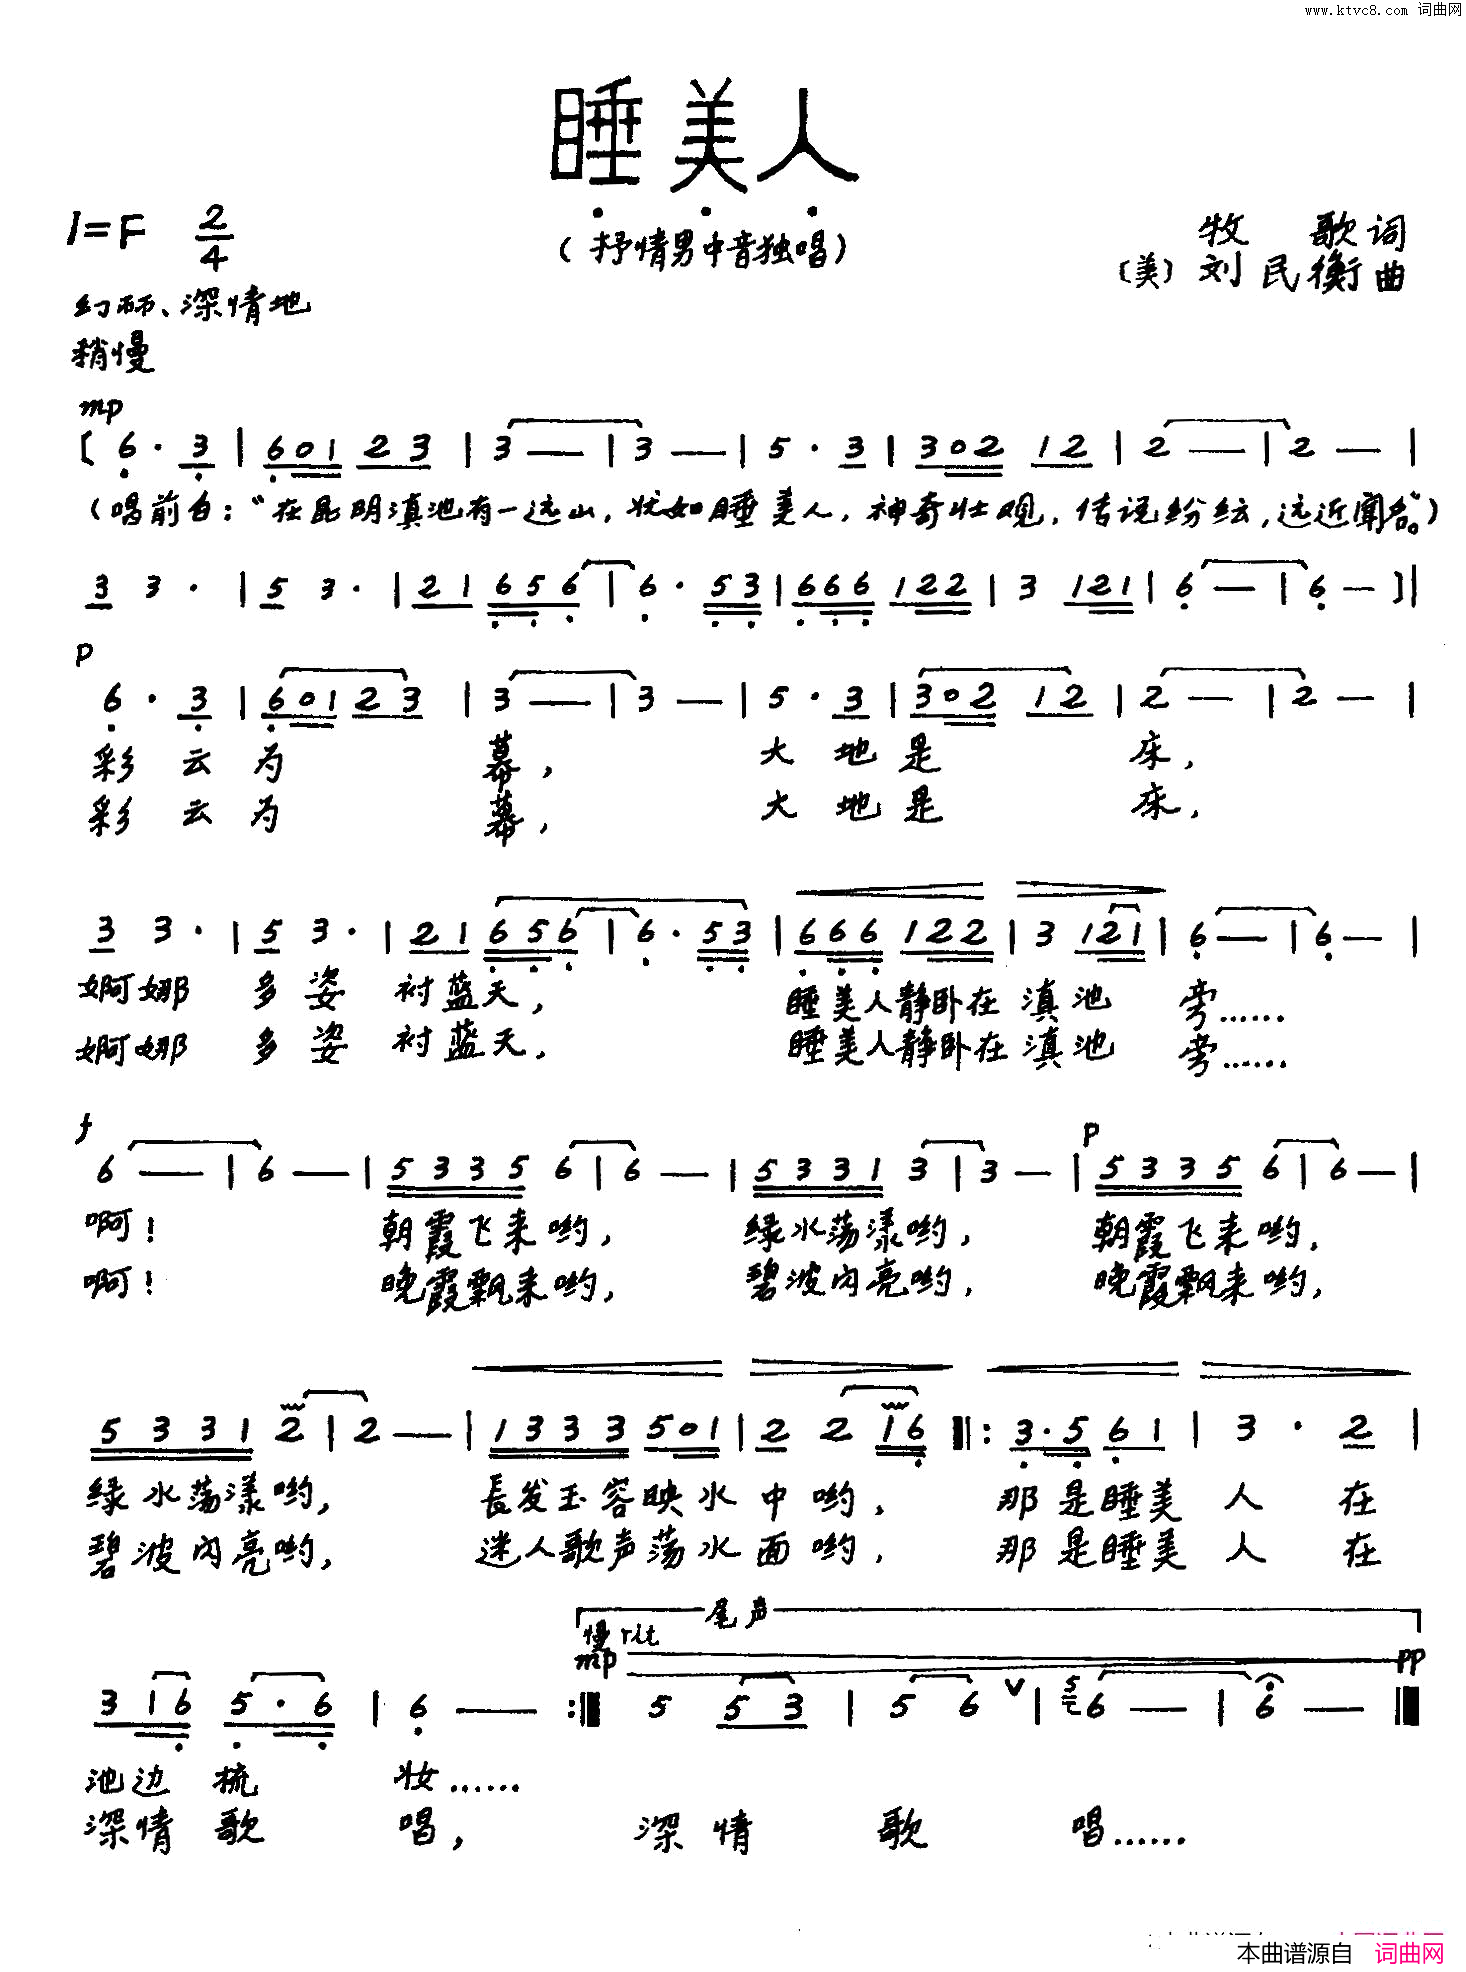 www.ktvc8.com 词曲网
睡美人
1=F 2/4
(抒情男中音独唱)
牧 歌词
(美) 刘民衡曲
幻丽、深情地
稍慢
mp
[ 6 · 3 | 6 0 1 2 3 | 3 — | 3 — | 5 · 3 | 3 0 2 1 2 | 2 — | 2 — |
(唱前白:“在昆明滇池有一远山,状如睡美人,神奇壮观,传说纷纭,远近闻名。”)
3 3 · | 5 3 · | 2 1 6 5 6 | 6 · 5 3 | 6 6 6 1 2 2 | 3 1 2 1 | 6 — | 6 — ] |
p
6 · 3 | 6 0 1 2 3 | 3 — | 3 — | 5 · 3 | 3 0 2 1 2 | 2 — | 2 — |
彩云为 幕, 大地是 床,
彩云为 幕, 大地是 床,
3 3 · | 5 3 · | 2 1 6 5 6 | 6 · 5 3 | 6 6 6 1 2 2 | 3 1 2 1 | 6 — | 6 — |
婀娜 多姿 衬蓝天, 睡美人静卧在滇池 旁……
婀娜 多姿 衬蓝天, 睡美人静卧在滇池 旁……
f p
6 — | 6 — | 5 3 3 5 6 | 6 — | 5 3 3 1 3 | 3 — | 5 3 3 5 6 | 6 — |
啊! 朝霞飞来哟, 绿水荡漾哟, 朝霞飞来哟,
啊! 晚霞飘来哟, 碧波闪亮哟, 晚霞飘来哟,
5 3 3 1 2 | 2 — | 1 3 3 3 5 0 1 | 2 2 1 6 ‖: 3 · 5 6 1 | 3 · 2 |
绿水荡漾哟, 長发玉容映水中哟, 那是睡美人在
碧波闪亮哟, 迷人歌声荡水面哟, 那是睡美人在
尾声
慢 rit
mp pp
3 1 6 5 · 6 | 6 — :‖ 5 5 3 | 5 6 V | 5 6 — | 6 — ‖
池边梳 妆……
深情歌 唱, 深情 歌 唱……
本曲谱源自 词曲网